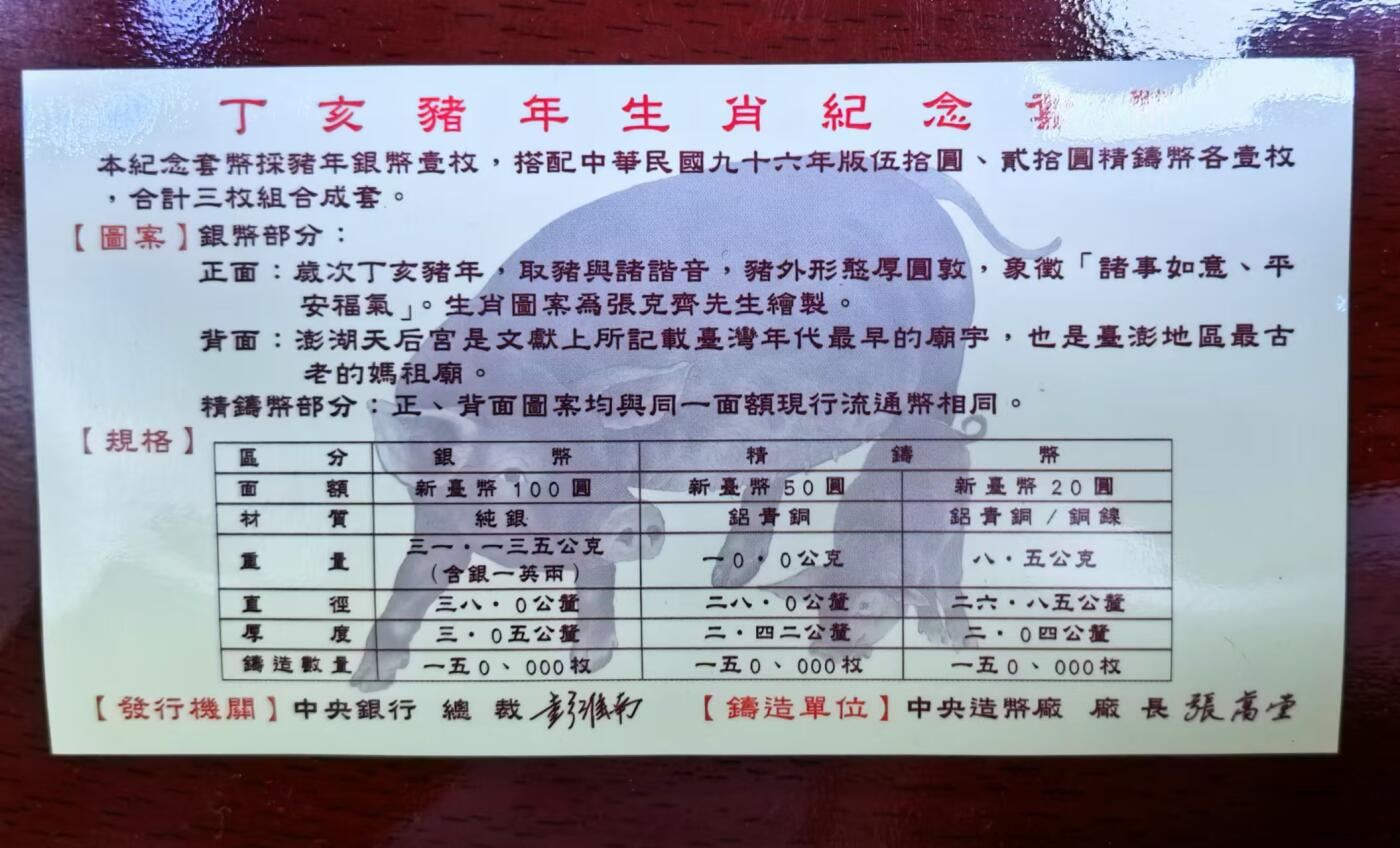 丁亥豬年生肖紀念套
本紀念套幣採豬年銀幣壹枚，搭配中華民國九十六年版伍拾圓、貳拾圓精鑄幣各壹枚
，合計三枚組合成套。
【圖案】銀幣部分：
正面：歲次丁亥豬年，取豬與諸諧音，豬外形憨厚圓敦，象徵「諸事如意、平
安福氣」。生肖圖案為張克齊先生繪製。
背面：澎湖天后宮是文獻上所記載臺灣年代最早的廟宇，也是臺澎地區最古
老的媽祖廟。
精鑄幣部分：正、背面圖案均與同一面額現行流通幣相同。
【規格】
區分 銀幣 精鑄幣
面額 新臺幣100圓 新臺幣50圓 新臺幣20圓
材質 純銀 鋁青銅 鋁青銅/銅鎳
重量 三一．一三五公克 一0．0公克 八．五公克
（含銀一英兩）
直徑 三八．0公釐 二八．0公釐 二六．八五公釐
厚度 三．0五公釐 二．四二公釐 二．0四公釐
鑄造數量 一五0、000枚 一五0、000枚 一五0、000枚
【發行機關】中央銀行 總裁 彭淮南 【鑄造單位】中央造幣廠 廠長 張萬堂